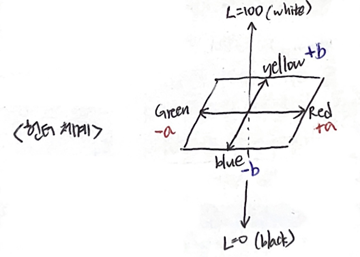 L=100 (white)
yellow +b
Green
-a
Red
+a
<헌터 체계>
blue
-b
L=0 (black)